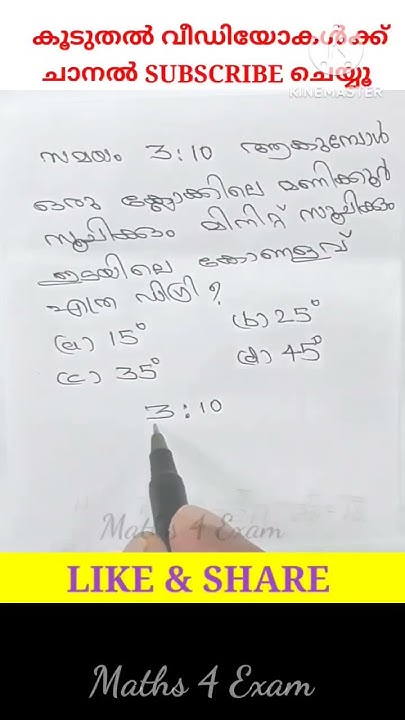 കൂടുതൽ വീഡിയോകൾക്ക്
ചാനൽ SUBSCRIBE ചെയ്യൂ
KINEMASTER
സമയം 3:10 ആകുമ്പോൾ
ഒരു ക്ലോക്കിലെ മണിക്കൂർ
സൂചിക്കും മിനിറ്റ് സൂചിക്കും
ഇടയിലെ കോണളവ്
എത്ര ഡിഗ്രി?
(a) 15° (b) 25°
(c) 35° (d) 45°
3:10
Maths 4 Exam
LIKE & SHARE
Maths 4 Exam